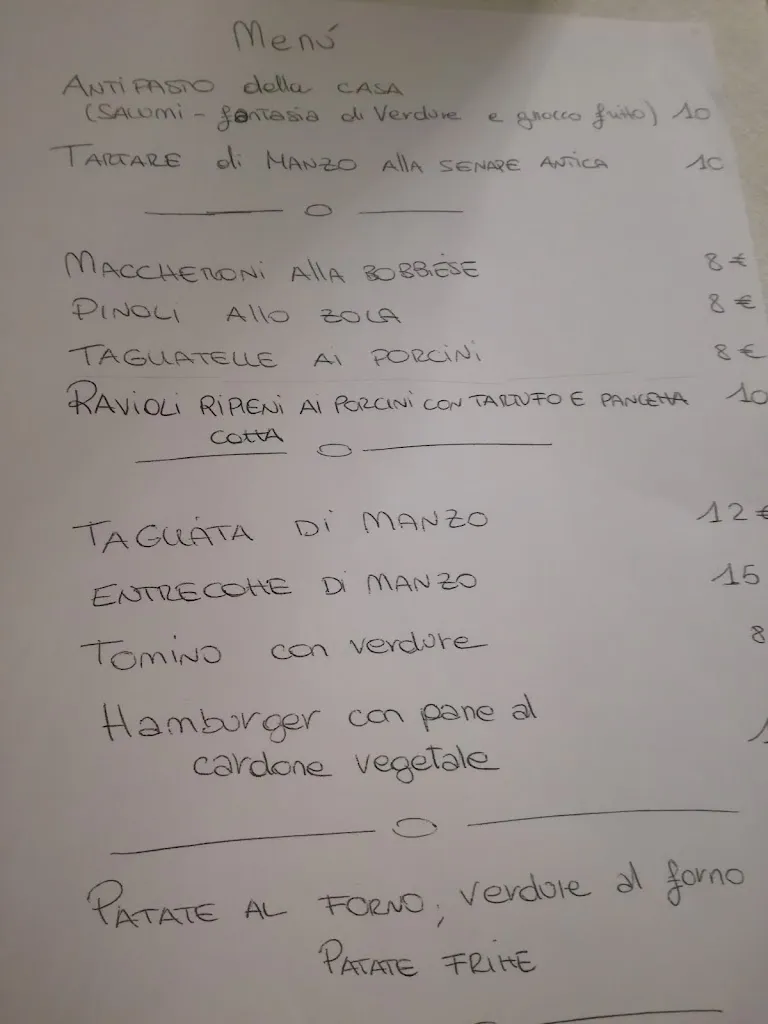 Menú
ANTIPASTO della CASA
(SALUMI - fantasia di Verdure e gnocco fritto) 10
TARTARE di MANZO Alla SENAPE ANTICA 10
MACCHERONI Alla BOBBIESE 8 €
PINOLI Allo ZOLA 8 €
TAGLIATELLE AI PORCINI 8 €
RAVIOLI RIPIENI AI PORCINI CON TARTUFO E PANCETTA 10
COTTA
TAGLIATA Di MANZO 12 €
ENTRECOTTE Di MANZO 15
Tomino con verdure 8
Hamburger con pane al
cardone vegetale 1
PATATE AL FORNO, verdure al forno
PATATE FRITTE